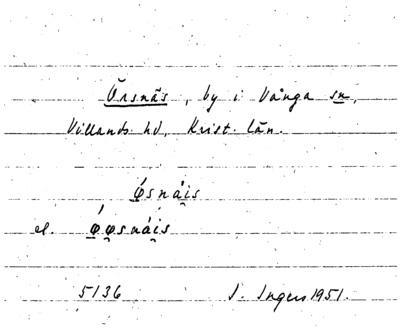 Örsnäs, by i Vånga sn,
Villands hd, Krist. län.
ǿsnái̯s
el. ǿø̯snái̯s
5136 I. Ingers 1951.